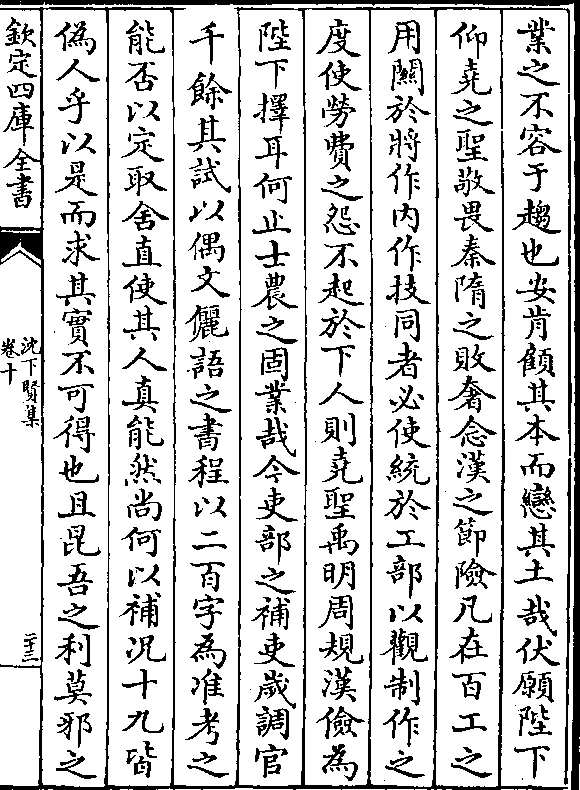 業之不容于趨也安肯顧其本而戀其土哉伏願陛下
仰堯之聖敬畏秦隋之敗奢念漢之節險凡在百工之
用闗於將作内作技同者必使統於工部以觀制作之
度使勞費之怨不起於下人則堯聖禹明周規漢儉為
陛下擇耳何止士農之固業哉今吏部之補吏嵗調官
千餘其試以偶文儷語之書程以二百字為准考之
能否以定取舍直使其人真能然尚何以補况十九皆
偽人乎以是而求其實不可得也且昆吾之利莫邪之
欽定四庫全書
沈下賢集
卷十
二十三